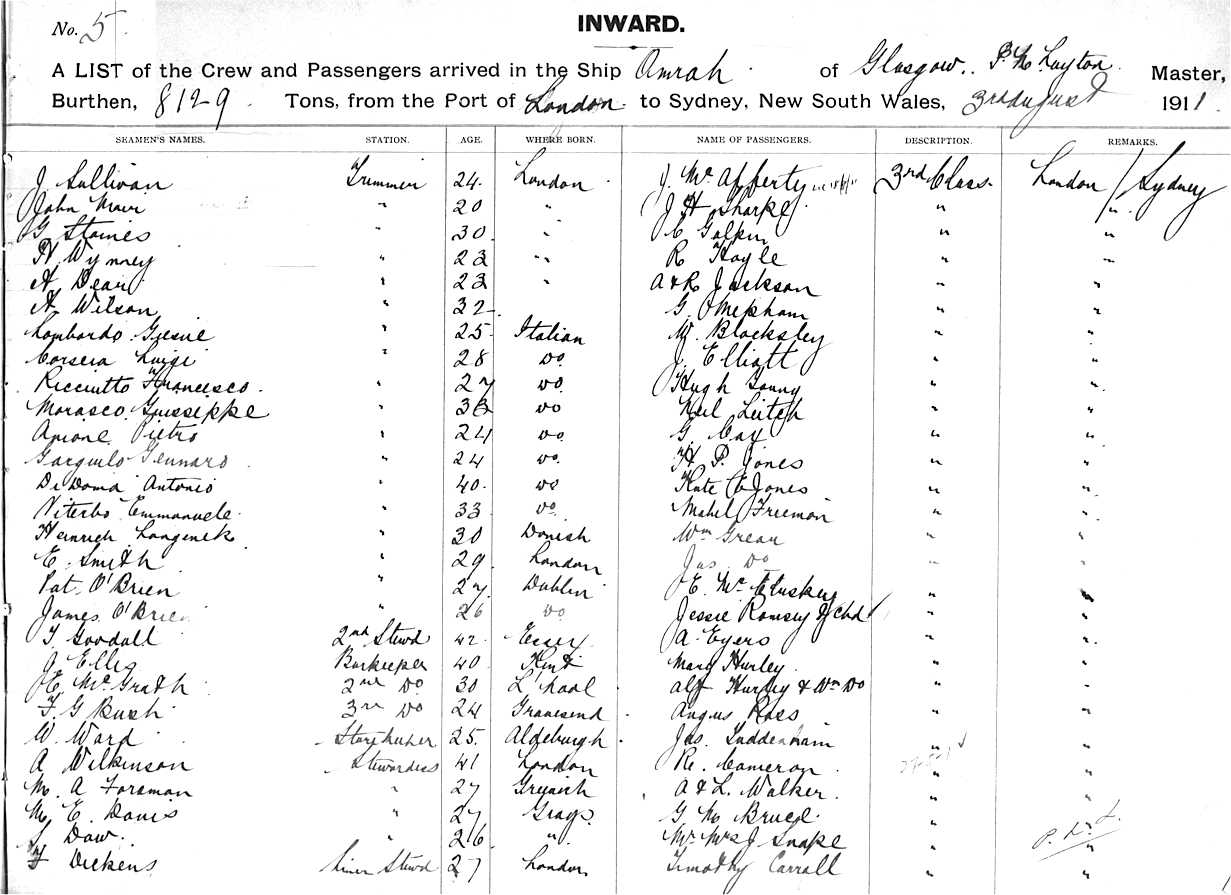 No. 5
INWARD.
A LIST of the Crew and Passengers arrived in the Ship Omrah of Glasgow. Layton Master,
Burthen, 8129 Tons, from the Port of London to Sydney, New South Wales, 3rd August 1911.
SEAMEN'S NAMES. STATION. AGE. WHERE BORN. NAME OF PASSENGERS. DESCRIPTION. REMARKS.
J Sullivan Trimmer 24. London J. McAfferty 3rd Class. London / Sydney
John " 20 " J H Sharpe " "
G Staines " 30 " C " "
H Wynney " 23 " R Hoyle " "
A Dean " 23 " A & R Jackson " "
A Wilson " 32 G. Mepham " "
Lombardo " 25 Italian W. Blocksley " "
Corseia Luigi " 28 Do J. Elliott " "
Ricciutto Francesco. " 27 Do Hugh Young " "
Morasco Guisseppe " 33 Do Neil Leitch " "
Pietro " 24 Do G. Cay " "
Garguilo Gennaro " 24 Do. H P. Jones " "
Di Doma Antonio " 40. Do Kate E Jones " "
Viterbo Emmanuele. " 33 Do. Mabel Freeman " "
Heinrich " 30 Danish Wm Grear " "
E. Smith " 29 London Jas. Do " "
Pat. O'Brien " 27 Dublin E. McCluskey " "
James O'Brien " 26 Do Jessie Ramsey & Chd " "
T Goodall 2nd Stewd 42 Essex A. Eyers " "
J Ellis Barkeeper 40 Kent Mary Hurley " "
E McGrath 2nd Do 30 L'pool Alf Hurley & Wm Do " "
F. G Bush 3rd Do 24 Gravesend Angus Ross " "
W. Ward Storekeeper 25. Aldeburgh Jas. Luddenham " "
A Wilkinson Stewardess 41 London Cameron " "
M. A Forsman " 27 A & L. Walker " "
M. E. Davis " 27 Grays G. M. Bruce " "
Daw. " 26 " Mr. Mrs J Snape " "
F Dickens Stewd 27 London Timothy Carroll " "